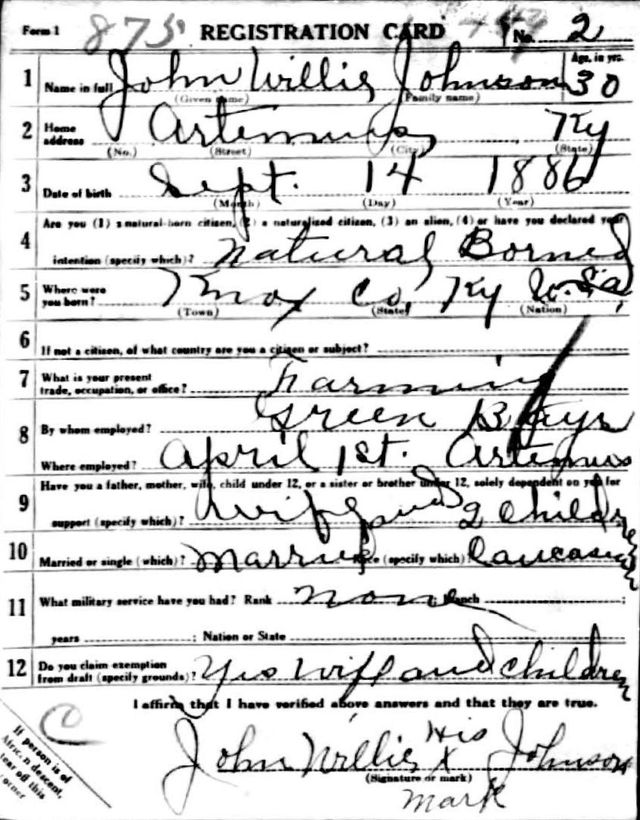 Form 1 875 REGISTRATION CARD No. 2
1 Name in full John Willie Johnson Age, in yrs. 30
(Given name) (Family name)
2 Home address Artemus, Ky
(No.) (Street) (City) (State)
3 Date of birth Sept. 14 1886
(Month) (Day) (Year)
4 Are you (1) a natural-born citizen, (2) a naturalized citizen, (3) an alien, (4) or have you declared your
intention (specify which)? Natural Borned
5 Where were you born? Knox Co, Ky U.S.a,
(Town) (State) (Nation)
6 If not a citizen, of what country are you a citizen or subject?
7 What is your present trade, occupation, or office? Farming
8 By whom employed? Green
Where employed? April 1st. Artemus
9 Have you a father, mother, wife, child under 12, or a sister or brother under 12, solely dependent on you for
support (specify which)? Wife and 2 Children
10 Married or single (which)? Married Race (specify which)? Caucasian
11 What military service have you had? Rank none ; Branch ;
years ; Nation or State
12 Do you claim exemption from draft (specify grounds)? Yes Wife and children
I affirm that I have verified above answers and that they are true.
John Willie His X Johnson
(Signature or mark)
mark
If person is of
African descent,
tear off this
corner